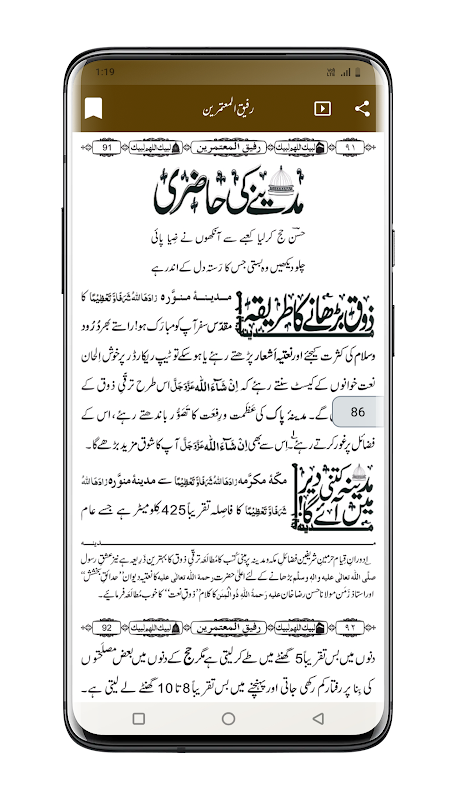 1:19
رفیق المعتمرین
91 لبیك اللهم لبیك رفیق المعتمرین لبیك اللهم لبیك ۹۱
مدینے کی حاضری
حسنؔ حج کرلیا کعبے سے آنکھوں نے ضیا پائی
چلو دیکھیں وہ بستی جس کا رستہ دل کے اندر ہے
ذوق بڑھانے کا طریقہ: مدینۂ منوَّرہ زادھا اللہ شرفاً وَّتعظیماً کا
مقدّس سفر آپ کو مبارک ہو! راستے بھر دُرُود
وسلام کی کثرت کیجئے اور نعتیہ اَشعار پڑھتے رہئے یا ہوسکے تو ٹیپ ریکارڈر پر خوش اِلحان
نعت خوانوں کے کیسٹ سنتے رہئے کہ اِنْ شَآءَ اللہ عَزَّوَجَلَّ اس طرح ترقیِٔ ذوق کے
گے۔ مدینۂ پاک کی عظمت و رِفعت کا تصوُّر باندھتے رہئے، اس کے
86
فضائل پر غور کرتے رہئے۔ اِس سے بھی اِنْ شَآءَ اللہ عَزَّوَجَلَّ آپ کا شوق مزید بڑھے گا۔
مدینہ کتنی دیر میں آئے گا! مکّۂ مکرَّمہ زادھا اللہ شرفاً وَّتعظیماً سے مدینۂ منوَّرہ زادھا اللہ
شرفاً وَّتعظیماً کا فاصلہ تقریباً 425 کلومیٹر ہے جسے عام
مدینہ
۱؎ دورانِ قیامِ حرمین شریفین فضائلِ مکہ و مدینہ پر مبنی کُتُب کا مطالعہ ترقیِٔ ذوق کا بہترین ذریعہ ہے نیز عشقِ رسول
صلی اللہ تعالٰی علیہ والہٖ وسلّم بڑھانے کے لئے اعلیٰ حضرت رحمۃ اللہ تعالٰی علیہ کا نعتیہ دیوان ''حدائقِ بخشش''
اور استاذِ زَمَن مولانا حسن رضا خان علیہ رحمۃ اللہ ذُو الْمِنَن کا کلام ''ذوقِ نعت'' کا خوب مُطالَعہ فرمائیے۔
92 لبیك اللهم لبیك رفیق المعتمرین لبیك اللهم لبیك ۹۲
دنوں میں بس تقریباً 5 گھنٹے میں طے کر لیتی ہے مگر حج کے دنوں میں بعض مصلحتوں
کی بنا پر رفتار کم رکھی جاتی اور پہنچنے میں بس تقریباً 8 تا 10 گھنٹے لے لیتی ہے۔